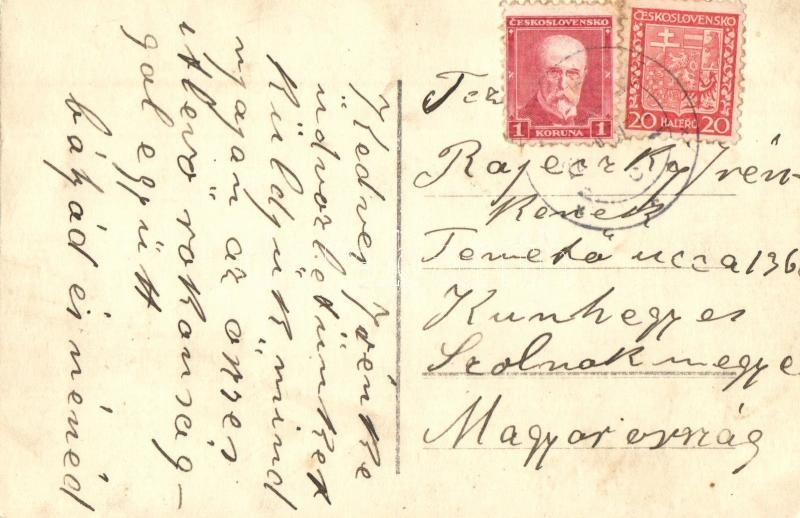 Kedves Irénke
üdvözletünket
Küldjük mind
nyajan az összes
itlevö rokonság-
gal együtt
bátyád és nénéd
ČESKOSLOVENSKO
1 KORUNA 1
ČESKOSLOVENSKO
20 HALÉŘŮ 20
Rajeczky Irén-
Kenek
Temető ucca 136
Kunhegyes
Szolnok megye
Magyarország